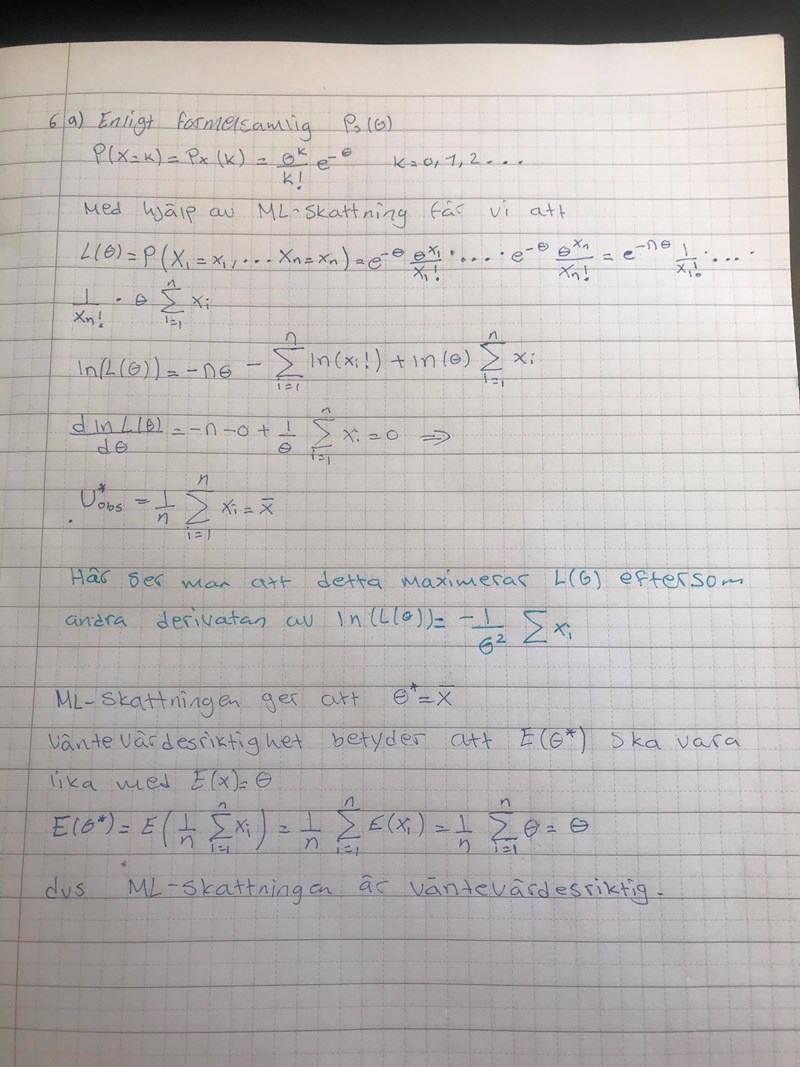 6 a) Enligt formelsamlig Po(θ)
P(X=k) = Px(k) = θ^k/k! e^-θ   k=0,1,2...
Med hjälp av ML-skattning får vi att
L(θ) = P(X₁ = x₁, ... Xn = xn) = e^-θ θ^x₁/x₁! · .... · e^-θ θ^xn/xn! = e^-nθ 1/x₁! · ...
1/xn! · θ Σ_{i=1}^{n} xi
ln(L(θ)) = -nθ - Σ_{i=1}^{n} ln(xi!) + ln(θ) Σ_{i=1}^{n} xi
d ln L(θ)/dθ = -n-0 + 1/θ Σ_{i=1}^{n} xi = 0 ⇒
U*obs = 1/n Σ_{i=1}^{n} xi = x̄
Här ser man att detta maximerar L(θ) eftersom
andra derivatan av ln(L(θ)) = -1/θ² Σ xi
ML-skattningen ger att θ* = x̄
Väntevärdesriktighet betyder att E(θ*) ska vara
lika med E(x) = θ
E(θ*) = E(1/n Σ_{i=1}^{n} xi) = 1/n Σ_{i=1}^{n} E(xi) = 1/n Σ_{i=1}^{n} θ = θ
dvs ML-skattningen är väntevärdesriktig.